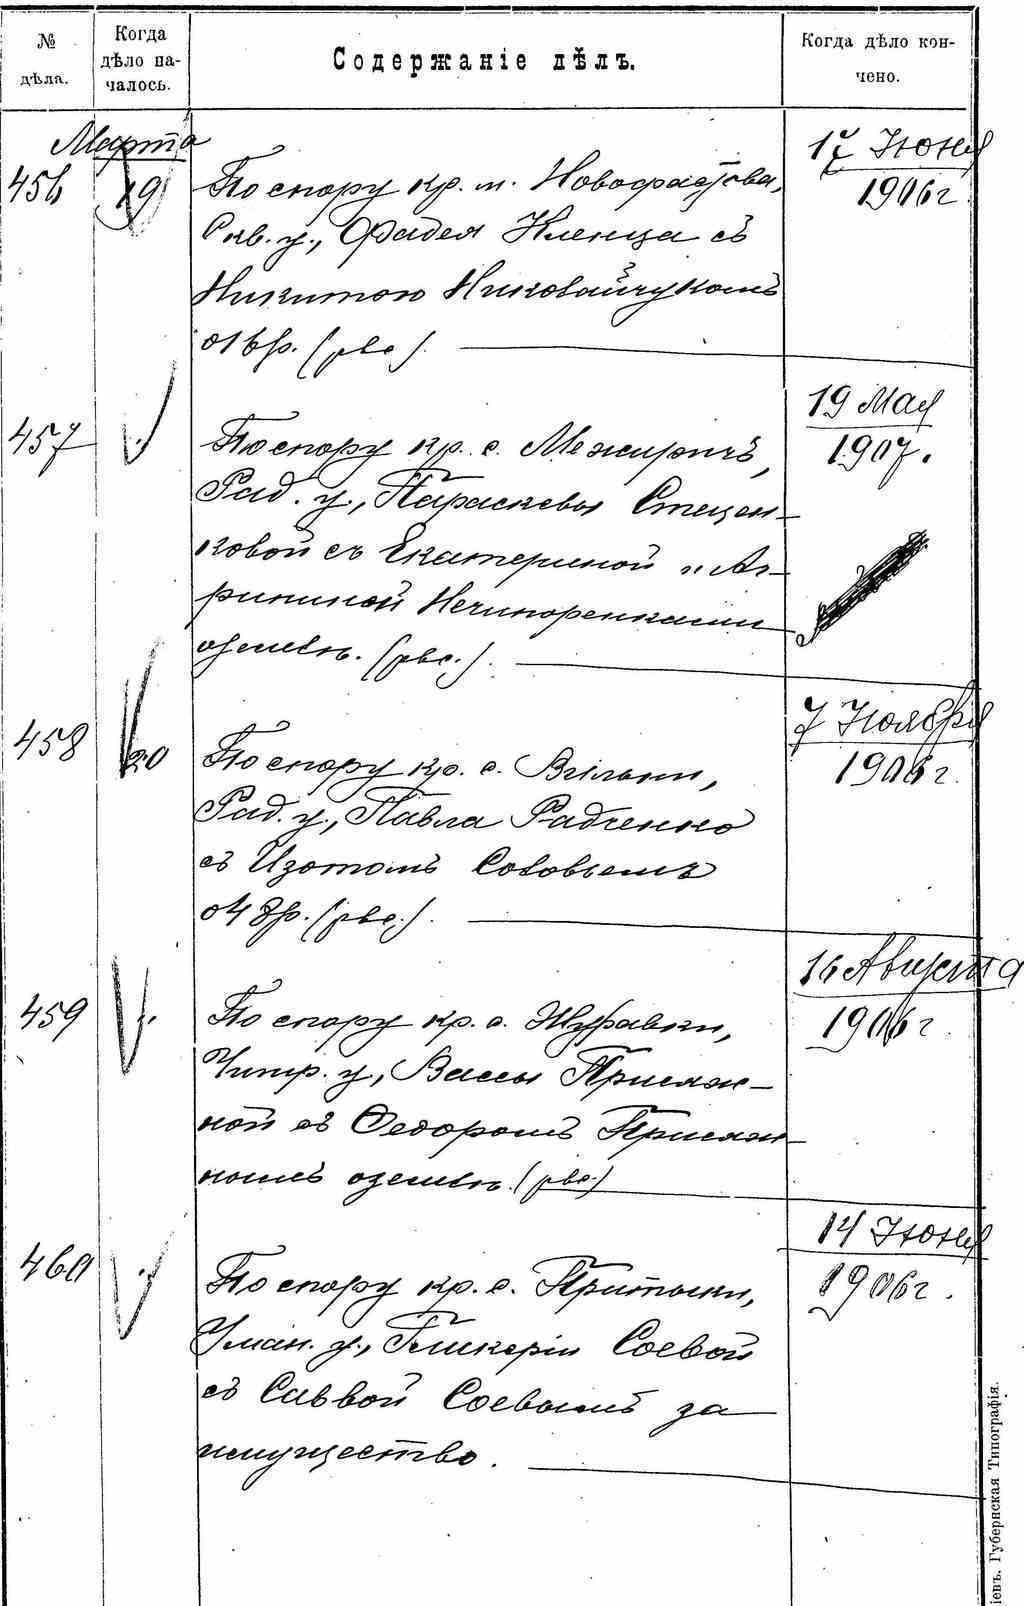 № дѣла.
Когда дѣло началось.
Содержаніе дѣлъ.
Когда дѣло кончено.
Марта
456 19
По спору кр. м. Новофастова,
Скв. у., Фадея Кленца съ
Никитою
(рвс).
17 Іюня
1906 г.
457
По спору кр. с. Межиричъ,
Рад. у., Параскевы Стецен-
ковой съ Екатериной и Аг-
рипиной Нечипоренками
о землѣ. (рвс.).
19 Мая
1907.
458 20
По спору кр. с. Вільни,
Рад. у., Павла Радченко
съ Изотомъ Соловьемъ
о 48 р. (рвс.).
7 Ноября
1906 г.
459
По спору кр. с. Журавки,
Чигир. у., Вассы Присяж-
ной съ Федоромъ Присяж-
нымъ о землѣ. (рвс.)
16 Августа
1906 г.
460
По спору кр. с. Притыки,
Уман. у., Гликеріи Соевой
съ Саввой Соевымъ за
имущество.
14 Іюня
1906 г.
іевъ. Губернская Типографія.